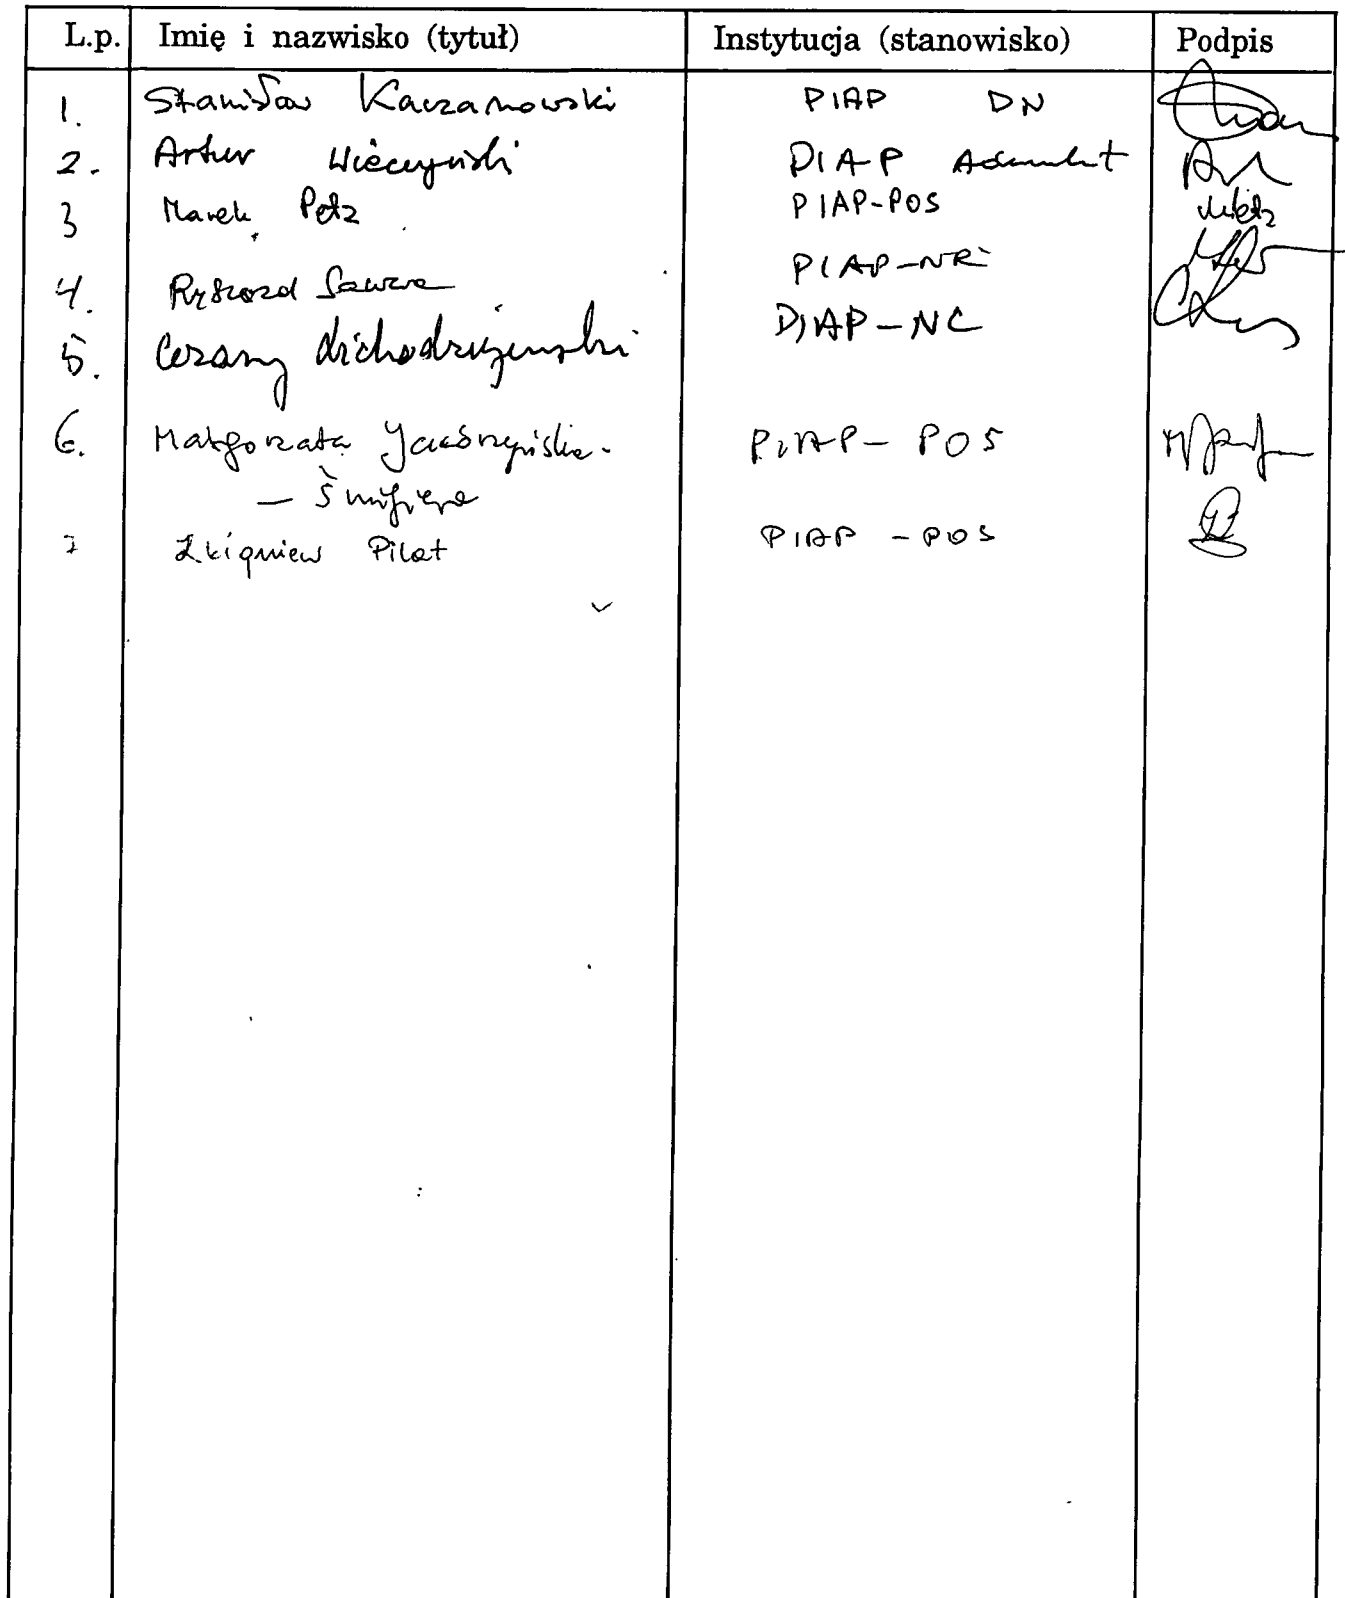 L.p. Imię i nazwisko (tytuł) Instytucja (stanowisko) Podpis
1. Stanisław Kaczanowski PIAP DN
2. Artur PIAP Adiunkt
3 Marek Petz PIAP-POS
4. Ryszard Sawwa PIAP-NR
5. Cezary PIAP-NC
6. Małgorzata PIAP-POS
7 Zbigniew Pilat PIAP-POS